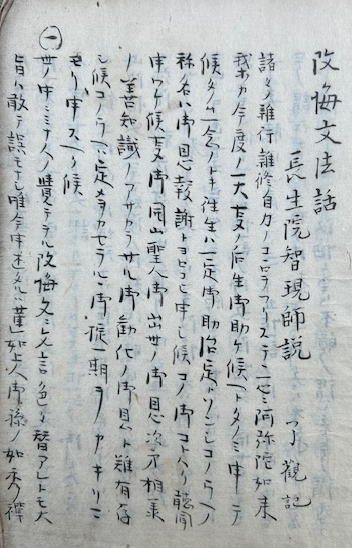 改悔文法話
長生院智現師説 了觀記
諸ノ雜行雜修自力ノコヽロヲフリステテ一心ニ阿弥陀如来
我等カ今度ノ一大事ノ后生御助ケ候ヘトタノミ申シテ
候タノム一念ノトキ往生ハ一定御助治定トソンシコノウヘノ
称名ハ御恩報謝トヨロコヒ申シ候コノ御コトハリ聴聞
申ワケ候事御開山聖人御出世ノ御恩次第相承
ノ善知識ノアサカラサル御勧化ノ御恩ト難有存
シ候コノウヘハ定メヲカセラルヽ御掟一期ヲカキリニ
モリ申スヘク候
㊀世ノ中ミナ人ノ覺ヘテヲル改悔文ニ人言ノ色々替アレトモ大
旨ハ敢テ誤モナシ唯今申述タルハ蓮如上人御孫ノ如秀禅